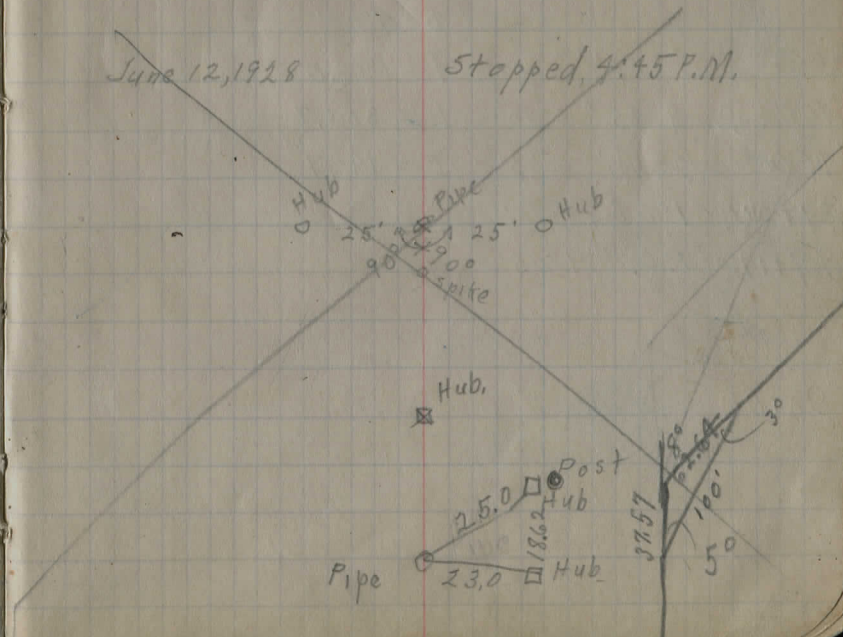 June 12, 1928 Stopped, 4:45 P.M.
Hub
Pipe
Hub
25' 25'
90° 90°
Spike
Hub.
Post
Hub
25.0
18.62
Pipe
23.0
Hub
8°
62.64
3°
100'
37.57
5°